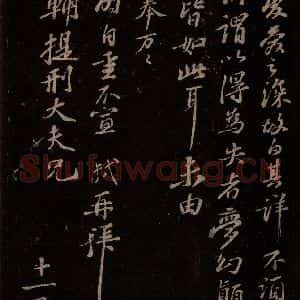 愛之深故白其詳 不須
謂以得為失者夢幻顛
皆如此耳 未由
奉萬々
自重不宣 再拜
輔提刑大夫兄
十一
Shufawang.CN